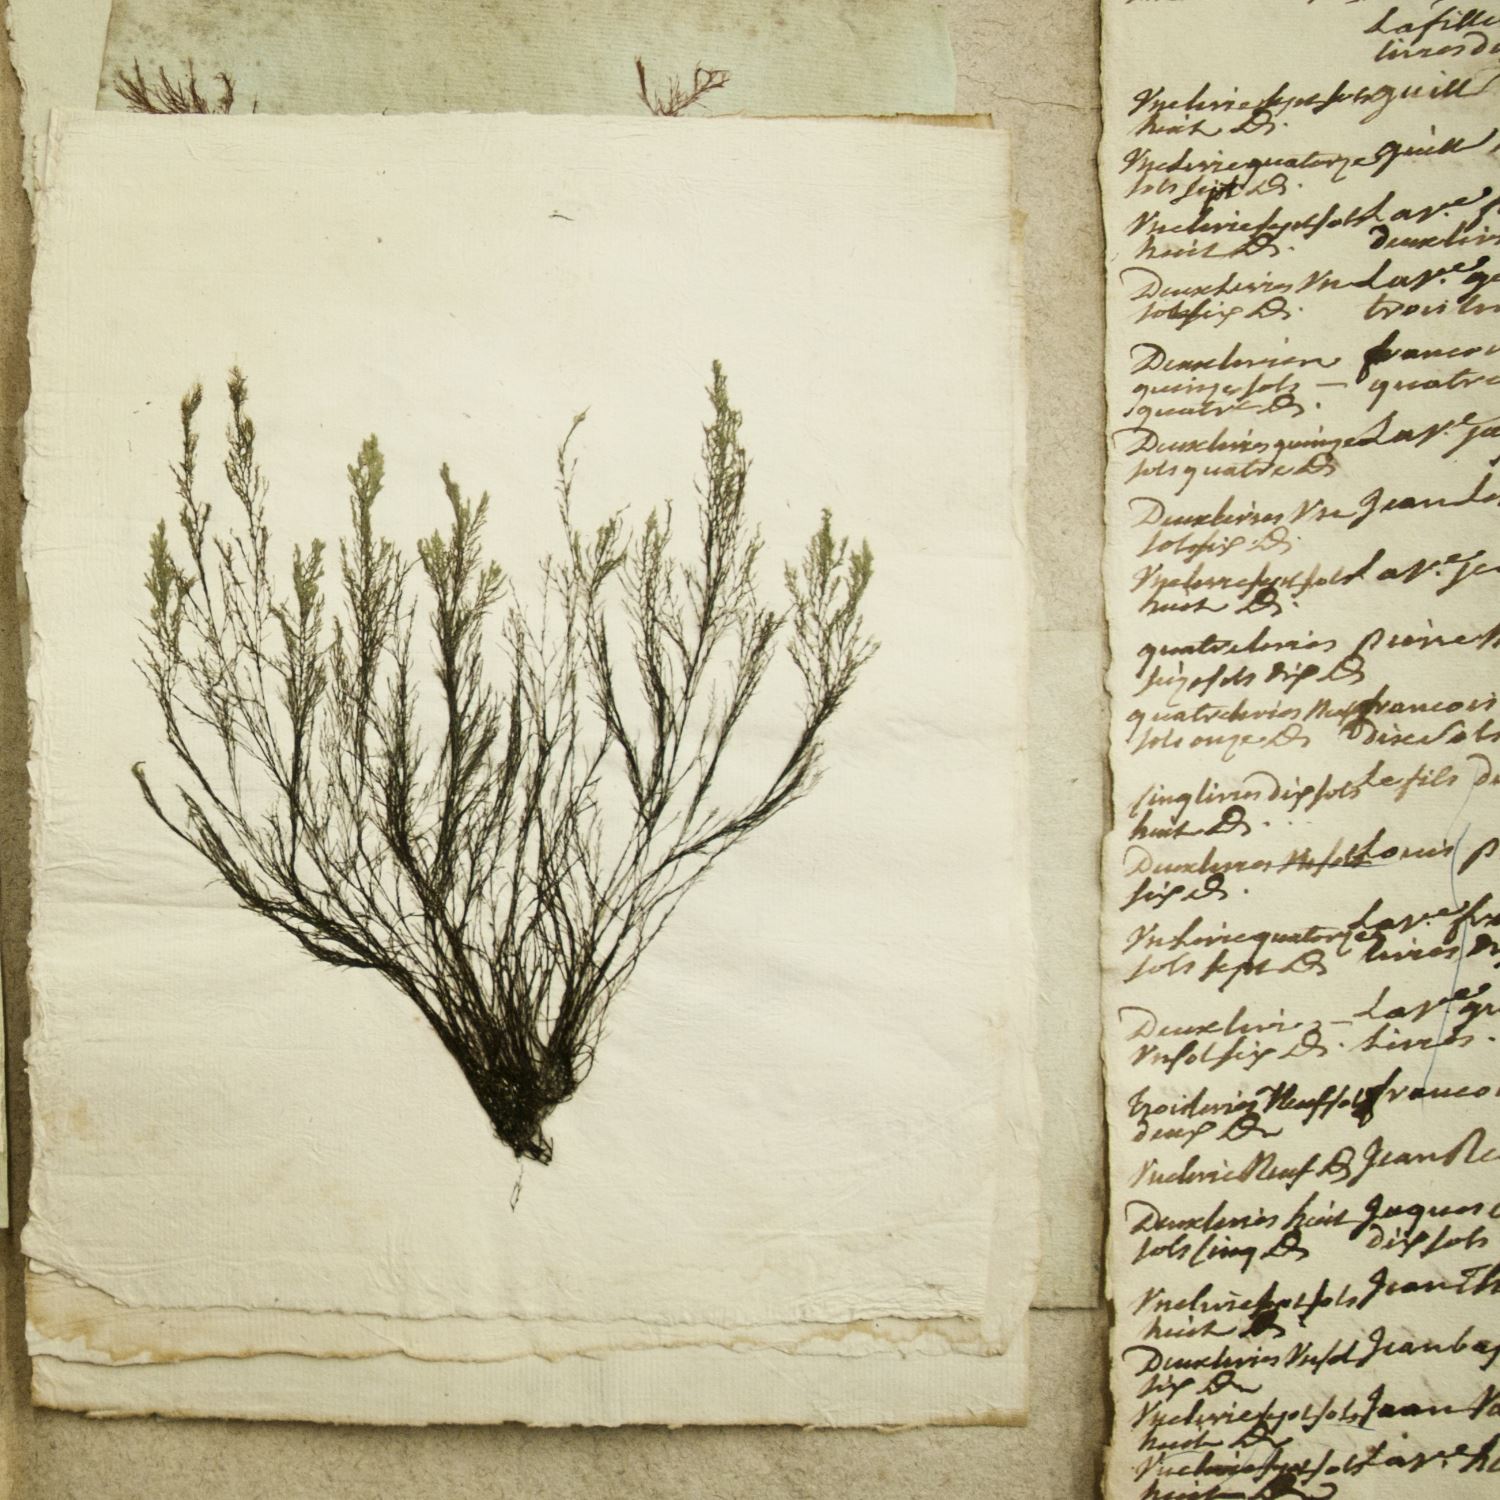 La fille
livres du
Vne livre sept sols guill
huit D.
Vne livre quatorze guill
sols sept D.
Vne livre sept sols La v.e
huit D. deux livr
Deux livres Vn La v.e
sols six D. trois liv
Deux livres francois
quinze sols — quatre
quatre D.
Deux livres quinze La v.e
sols quatre D
Deux livres Vn Jean
sols six D.
Vne livre sept sols La v.e
huit D.
quatre livres pierre
seize sols dix D
quatre livres Neuf francois
sols onze D dix sols
sinq livres dix sols Le fils du
huit D.
Deux livres Vn sol Louis p
six D.
Vn Livre quatorze La v.e
sols sept D livres
Deux livres — La v.e
Vn sol six D. Livres.
trois livres Neuf sols francoi
deux D
Vne livre Neuf D Jean
Deux livres huit Jaques
sols sinq D dix sols
Vne livre sept sols Jean Th
huit D
Deux livres Vn sol Jean bap
six D
Vne livre sept sols Jean
huit D
Vne livre sept sols La v.e
huit D